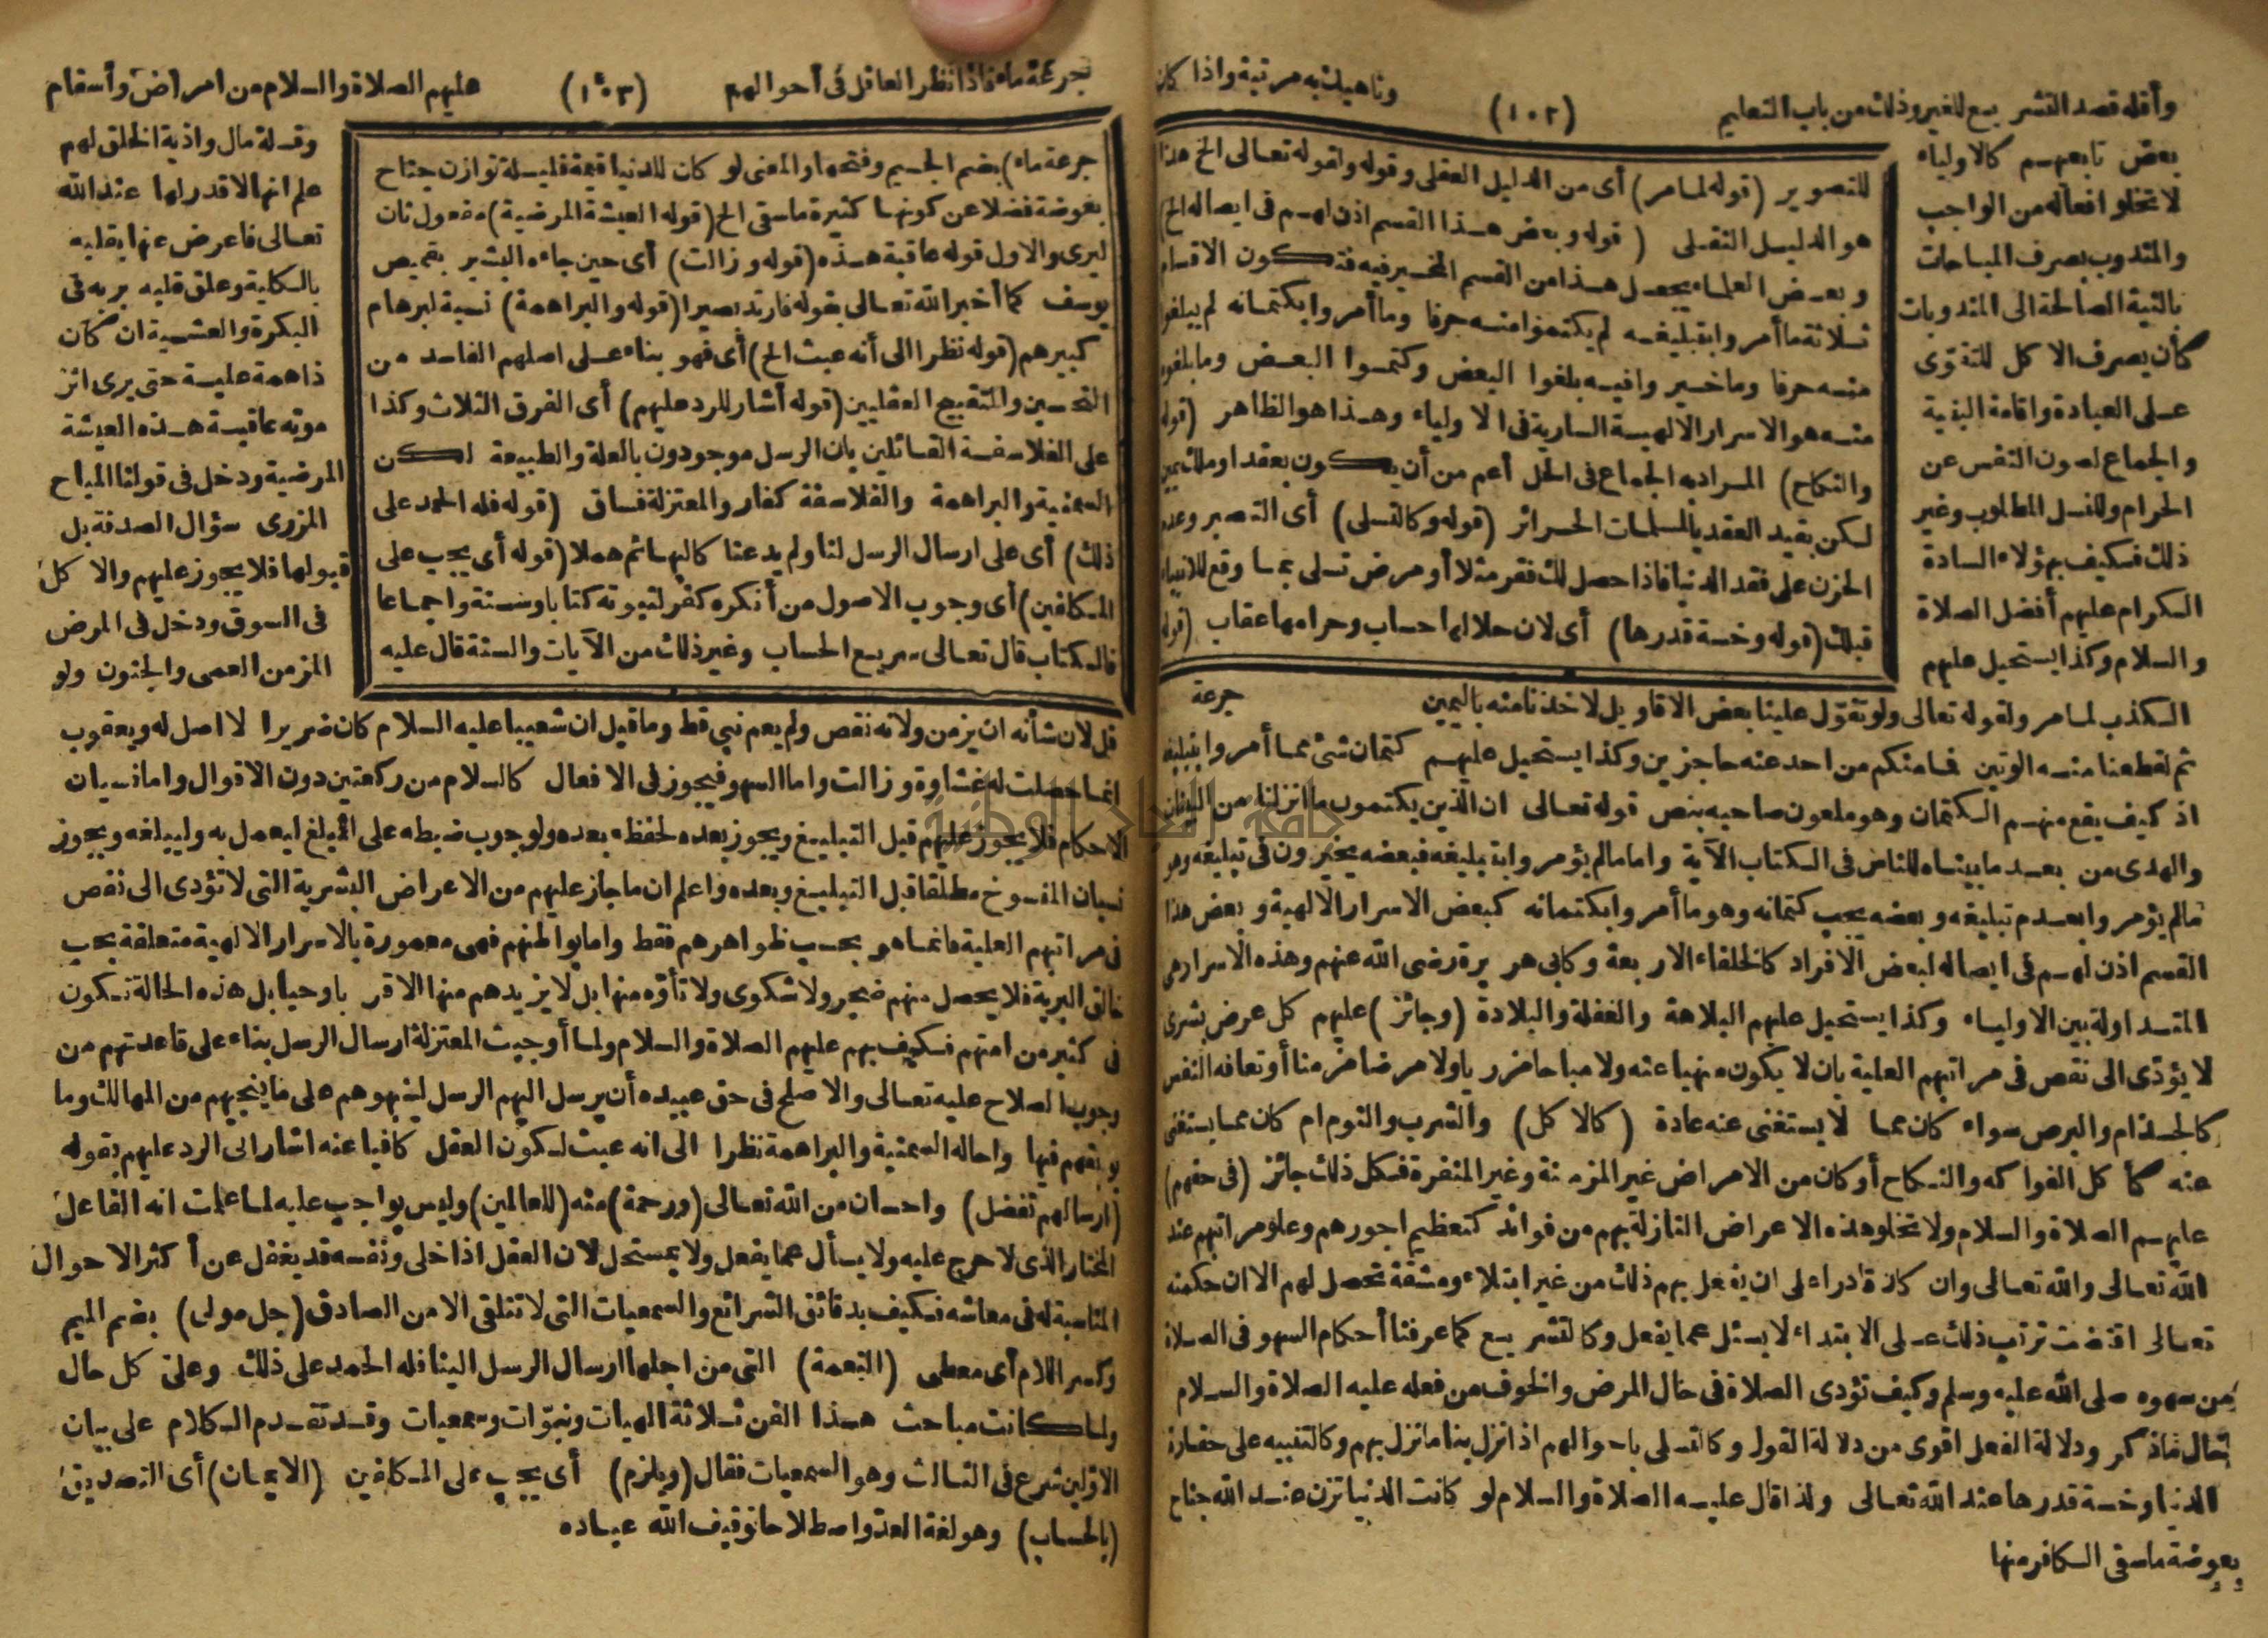 وأقله قصد التشريع للغير وذلك من باب التعليم
(١٠٢)
وناهيك به مرتبة واذا كان
بعض تابعيهم كالاولياء
لا تخلو افعاله من الواجب
والمندوب بصرف المباحات
بالنية الصالحة الى المندوبات
كأن يصرف الاكل للتقوى
على العبادة واقامة البنية
والجماع لصون النفس عن
الحرام وللنسل المطلوب وغير
ذلك فكيف بهؤلاء السادة
الكرام عليهم أفضل الصلاة
والسلام وكذا يستحيل عليهم
الكذب لما مر ولقوله تعالى ولو تقوّل علينا بعض الاقاويل لاخذنا منه باليمين
ثم لقطعنا منه الوتين فما منكم من احد عنه حاجزين وكذا يستحيل عليهم كتمان شئ مما أمروا بتبليغه
اذ كيف يقع منهم الكتمان وهو ملعون صاحبه بنص قوله تعالى ان الذين يكتمون ما انزلنا من البينات
والهدى من بعد ما بيناه للناس فى الكتاب الآية واما ما لم يؤمروا بتبليغه فبعضه يخيرون فى تبليغه وهو
ما لم يؤمروا بعدم تبليغه وبعضه يجب كتمانه وهو ما أمروا بكتمانه كبعض الاسرار الالهية وبعض هذا
القسم اذن لهم فى ايصاله لبعض الافراد كالخلفاء الاربعة وكابى هريرة رضى الله عنهم وهذه الاسرار هى
المتداولة بين الاولياء وكذا يستحيل عليهم البلاهة والغفلة والبلادة (وجائز) عليهم كل عرض بشرى
لا يؤدّى الى نقص فى مراتبهم العلية بان لا يكون منهيا عنه ولا مباحا مزريا ولا مرضا مزمنا أو تعافه النفس
كالجذام والبرص سواء كان مما لا يستغنى عنه عادة (كالاكل) والشرب والنوم ام كان مما يستغنى
عنه كأكل الفواكه والنكاح أو كان من الامراض غير المزمنة وغير المنفرة فكل ذلك جائز (فى حقهم)
عليهم الصلاة والسلام ولا تخلو هذه الاعراض النازلة بهم من فوائد كتعظيم اجورهم وعلو مراتبهم عند
الله تعالى والله تعالى وان كان قادرا على ان يفعل بهم ذلك من غير ابتلاء ومشقة تحصل لهم الا ان حكمته
تعالى اقتضت ترتيب ذلك على الابتداء لا يسئل عما يفعل وكالتشريع كما عرفنا أحكام السهو فى الصلاة
من سهوه صلى الله عليه وسلم وكيف تؤدى الصلاة فى حال المرض والخوف من فعله عليه الصلاة والسلام
ودلالة الفعل اقوى من دلالة القول وكالتسلى باحوالهم اذا نزل بنا ما نزل بهم وكالتنبيه على حقارة
الدنيا وخسة قدرها عند الله تعالى ولذا قال عليه الصلاة والسلام لو كانت الدنيا تزن عند الله جناح
بعوضة ما سقى الكافر منها
للتصوير (قوله لما مر) أى من الدليل العقلى وقوله ولقوله تعالى الخ هذا
هو الدليل النقلى (قوله وبعض هذا القسم اذن لهم فى ايصاله الخ)
وبعض العلماء يجعل هذا من القسم المخير فيه فتكون الاقسام
ثلاثة ما أمروا بتبليغه لم يكتموا منه حرفا وما أمروا بكتمانه لم يبلغوا
منه حرفا وما خيروا فيه بلغوا البعض وكتموا البعض وما بلغوه
منه هو الاسرار الالهية السارية فى الاولياء وهذا هو الظاهر (قوله
والنكاح) المراد به الجماع فى الحل أعم من أن يكون بعقد او ملك يمين
لكن بقيد العقد بالمسلمات الحرائر (قوله وكالتسلى) أى التصبر وعدم
الحزن على فقد الدنيا فاذا حصل لك فقر مثلا أو مرض تسلى بما وقع للانبياء
قبلك (قوله وخسة قدرها) أى لان حلالها حساب وحرامها عقاب (قوله
جرعة
جرعة ماء فاذا نظر العاقل فى أحوالهم
(١٠٣)
عليهم الصلاة والسلام من امراض وأسقام
وقلة مال واذية الخلق لهم
علم انها لا قدر لها عند الله
تعالى فاعرض عنها بقلبه
بالكلية وعلق قلبه بربه فى
البكرة والعشية ان كان
ذا همة علية حتى يرى اثر
موته عاقبة هذه العيشة
المرضية ودخل فى قولنا المباح
المزرى سؤال الصدقة بل
قبولها فلا يجوز عليهم والاكل
فى السوق ودخل فى المرض
المزمن العمى والجنون ولو
قل لان شأنه ان يزمن ولانه نقص ولم يعم نبى قط وما قيل ان شعيبا عليه السلام كان ضريرا لا اصل له ويعقوب
انما حصلت له غشاوة وزالت واما السهو فيجوز فى الافعال كالسلام من ركعتين دون الاقوال واما نسيان
الاحكام فلا يجوز عليهم قبل التبليغ ويجوز بعده لحفظه بعده ولوجوب ضبطه على المبلغ ليعمل به وليبلغه ويجوز
نسيان المنسوخ مطلقا قبل التبليغ وبعده واعلم ان ما جاز عليهم من الاعراض البشرية التى لا تؤدى الى نقص
فى مراتبهم العلية فانما هو بحسب ظواهرهم فقط واما بواطنهم فهى معمورة بالاسرار الالهية متعلقة بحب
خالق البرية فلا يحصل منهم ضجر ولا شكوى ولا تأوّه منها بل لا يزيدهم منها الا قربا وحبا بل هذه الحالة تكون
فى كثير من امتهم فكيف بهم عليهم الصلاة والسلام ولما أوجبت المعتزلة ارسال الرسل بناء على قاعدتهم من
وجوب الصلاح عليه تعالى والاصلح فى حق عبيده أن يرسل اليهم الرسل لينبهوهم على ما ينجيهم من المهالك وما
يوبقهم فيها واحاله السمنية والبراهمة نظرا الى انه عبث لكون العقل كافيا عنه اشار الى الرد عليهم بقوله
(ارسالهم تفضل) واحسان من الله تعالى (ورحمة) منه (للعالمين) وليس بواجب عليه لما علمت انه الفاعل
المختار الذى لا حرج عليه ولا يسأل عما يفعل ولا بمستحل لان العقل اذا خلى ونفسه قد يغفل عن أكثر الاحوال
المناسبة له فى معاشه فكيف بدقائق الشرائع والسمعيات التى لا تتلقى الا من الصادق (جل مولى) بضم الميم
وكسر اللام أى معطى (النعمة) التى من اجلها ارسال الرسل الينا فله الحمد على ذلك وعلى كل حال
ولما كانت مباحث هذا الفن ثلاثة الهيات ونبوّات وسمعيات وقد تقدم الكلام على بيان
الاوّلين شرع فى الثالث وهو السمعيات فقال (ويلزم) أى يجب على المكلفين (الايمان) أى التصديق
(بالحساب) وهو لغة العدّ واصطلاحا توقيف الله عباده
جرعة ماء) بضم الجيم وفتحها والمعنى لو كان للدنيا قيمة قليلة توازن جناح
بعوضة فضلا عن كونها كثيرة ما سقى الخ (قوله العيشة المرضية) مفعول ثان
ليرى والاول قوله عاقبة هذه (قوله وزالت) أى حين جاءه البشير بقميص
يوسف كما أخبر الله تعالى بقوله فارتد بصيرا (قوله والبراهمة) نسبة لبرهام
كبيرهم (قوله نظرا الى أنه عبث الخ) أى فهو بناء على اصلهم الفاسد من
التحسين والتقبيح العقليين (قوله أشار للرد عليهم) أى الفرق الثلاث وكذا
على الفلاسفة القائلين بان الرسل موجودون بالعلة والطبيعة لكن
السمنية والبراهمة والفلاسفة كفار والمعتزلة فساق (قوله فله الحمد على
ذلك) أى على ارسال الرسل لنا ولم يدعنا كالبهائم هملا (قوله أى يجب على
المكلفين) أى وجوب الاصول من أنكره كفر لثبوته كتابا وسنة واجماعا
فالكتاب قال تعالى سريع الحساب وغير ذلك من الآيات والسنة قال عليه
جامعة النجاح الوطنية